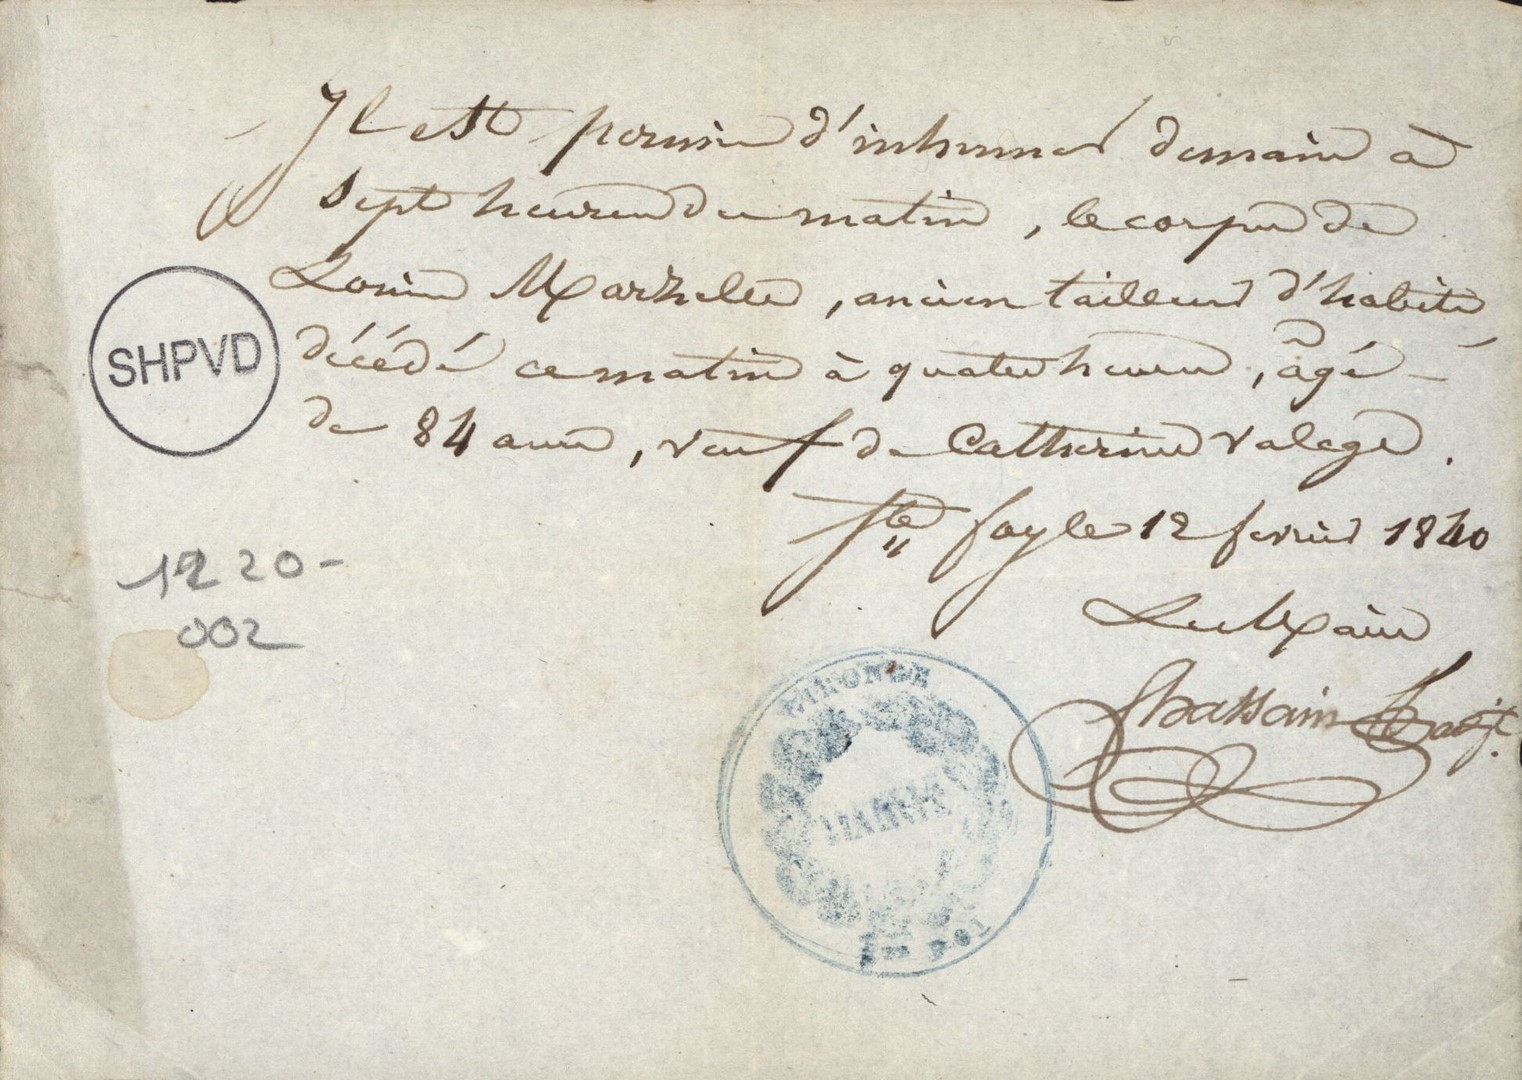 Il est permis d'inhumer demain à
sept heures du matin, le corps de
Louis, ancien tailleur d'habits
décédé ce matin à quatre heures, âgé
de 84 ans, veuf de Catherine Valege.
Ste foy le 12 fevrier 1840
Le Maire
SHPVD
1220-
002
GIRONDE
MAIRIE